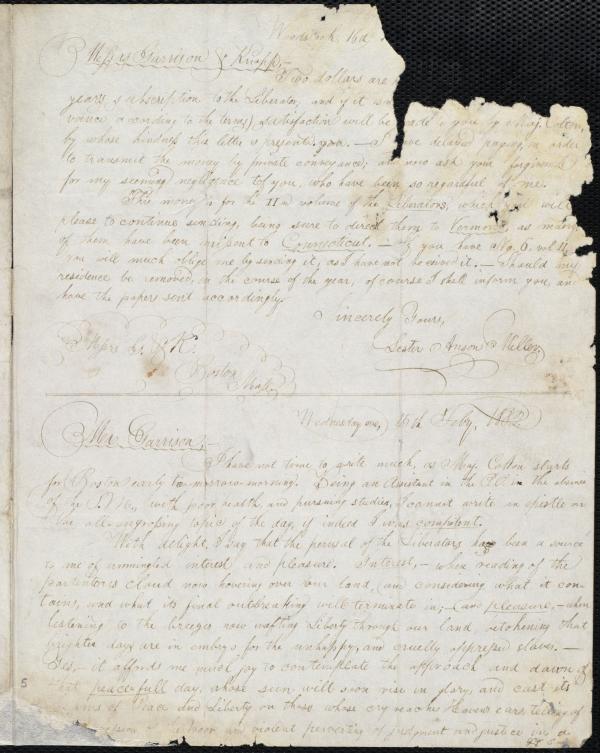 Woodstock, 16th
Messrs Garrison & Knapp,—
Two dollars are
years subscription to the Liberator, and if it is
vance according to the terms, satisfaction will be made to you by Maj. Colton,
by whose kindness this letter is presented you. — I have delayed paying, in order
to transmit the money by private conveyance; and now ask your forgiveness
for my seeming negligence to you, who have been so regardful of me.
This money is for the IInd volume of the Liberators, which you will
please to continue sending, being sure to direct them to Vermont, as many
of them have been missent to Connecticut. — If you have a No. 6. vol II,
you will much oblige me by sending it, as I have not received it. — Should my
residence be removed, in the course of the year, of course I shall inform you, and
have the papers sent accordingly.
Sincerely Yours,
Messrs G. & K.
Lester Anson Miller.
Boston
Mass.
Wednesday eve, 15th Feby, 1832
Mr Garrison,—
I have not time to write much, as Maj. Colton starts
for Boston early to-morrow-morning. Being an Assistant in the P.O. in the absence
of the P.M., with poor health, and pursuing studies, I cannot write an epistle on
the all-engrossing topic of the day, if indeed I was competent.
With delight, I say that the perusal of the Liberators has been a source
to me of unmingled interest and pleasure. Interest,— when reading of the
portentous cloud now hovering over our land, (and considering what it con-
tains, and what its final outbreaking will terminate in;) and pleasure,— when
listening to the breezes now wafting Liberty through our land, betokening that
brighter days are in embryo for the unhappy, and cruelly oppressed slaves. —
Yes,— it affords me much joy to contemplate the approach and dawn of
that peace-full day, whose sun will soon rise in glory, and cast its
of Peace and Liberty on those whose cry reaches Heaven's ears, telling of
oppression of the poor and violent perverting of judgment and justice in a
5